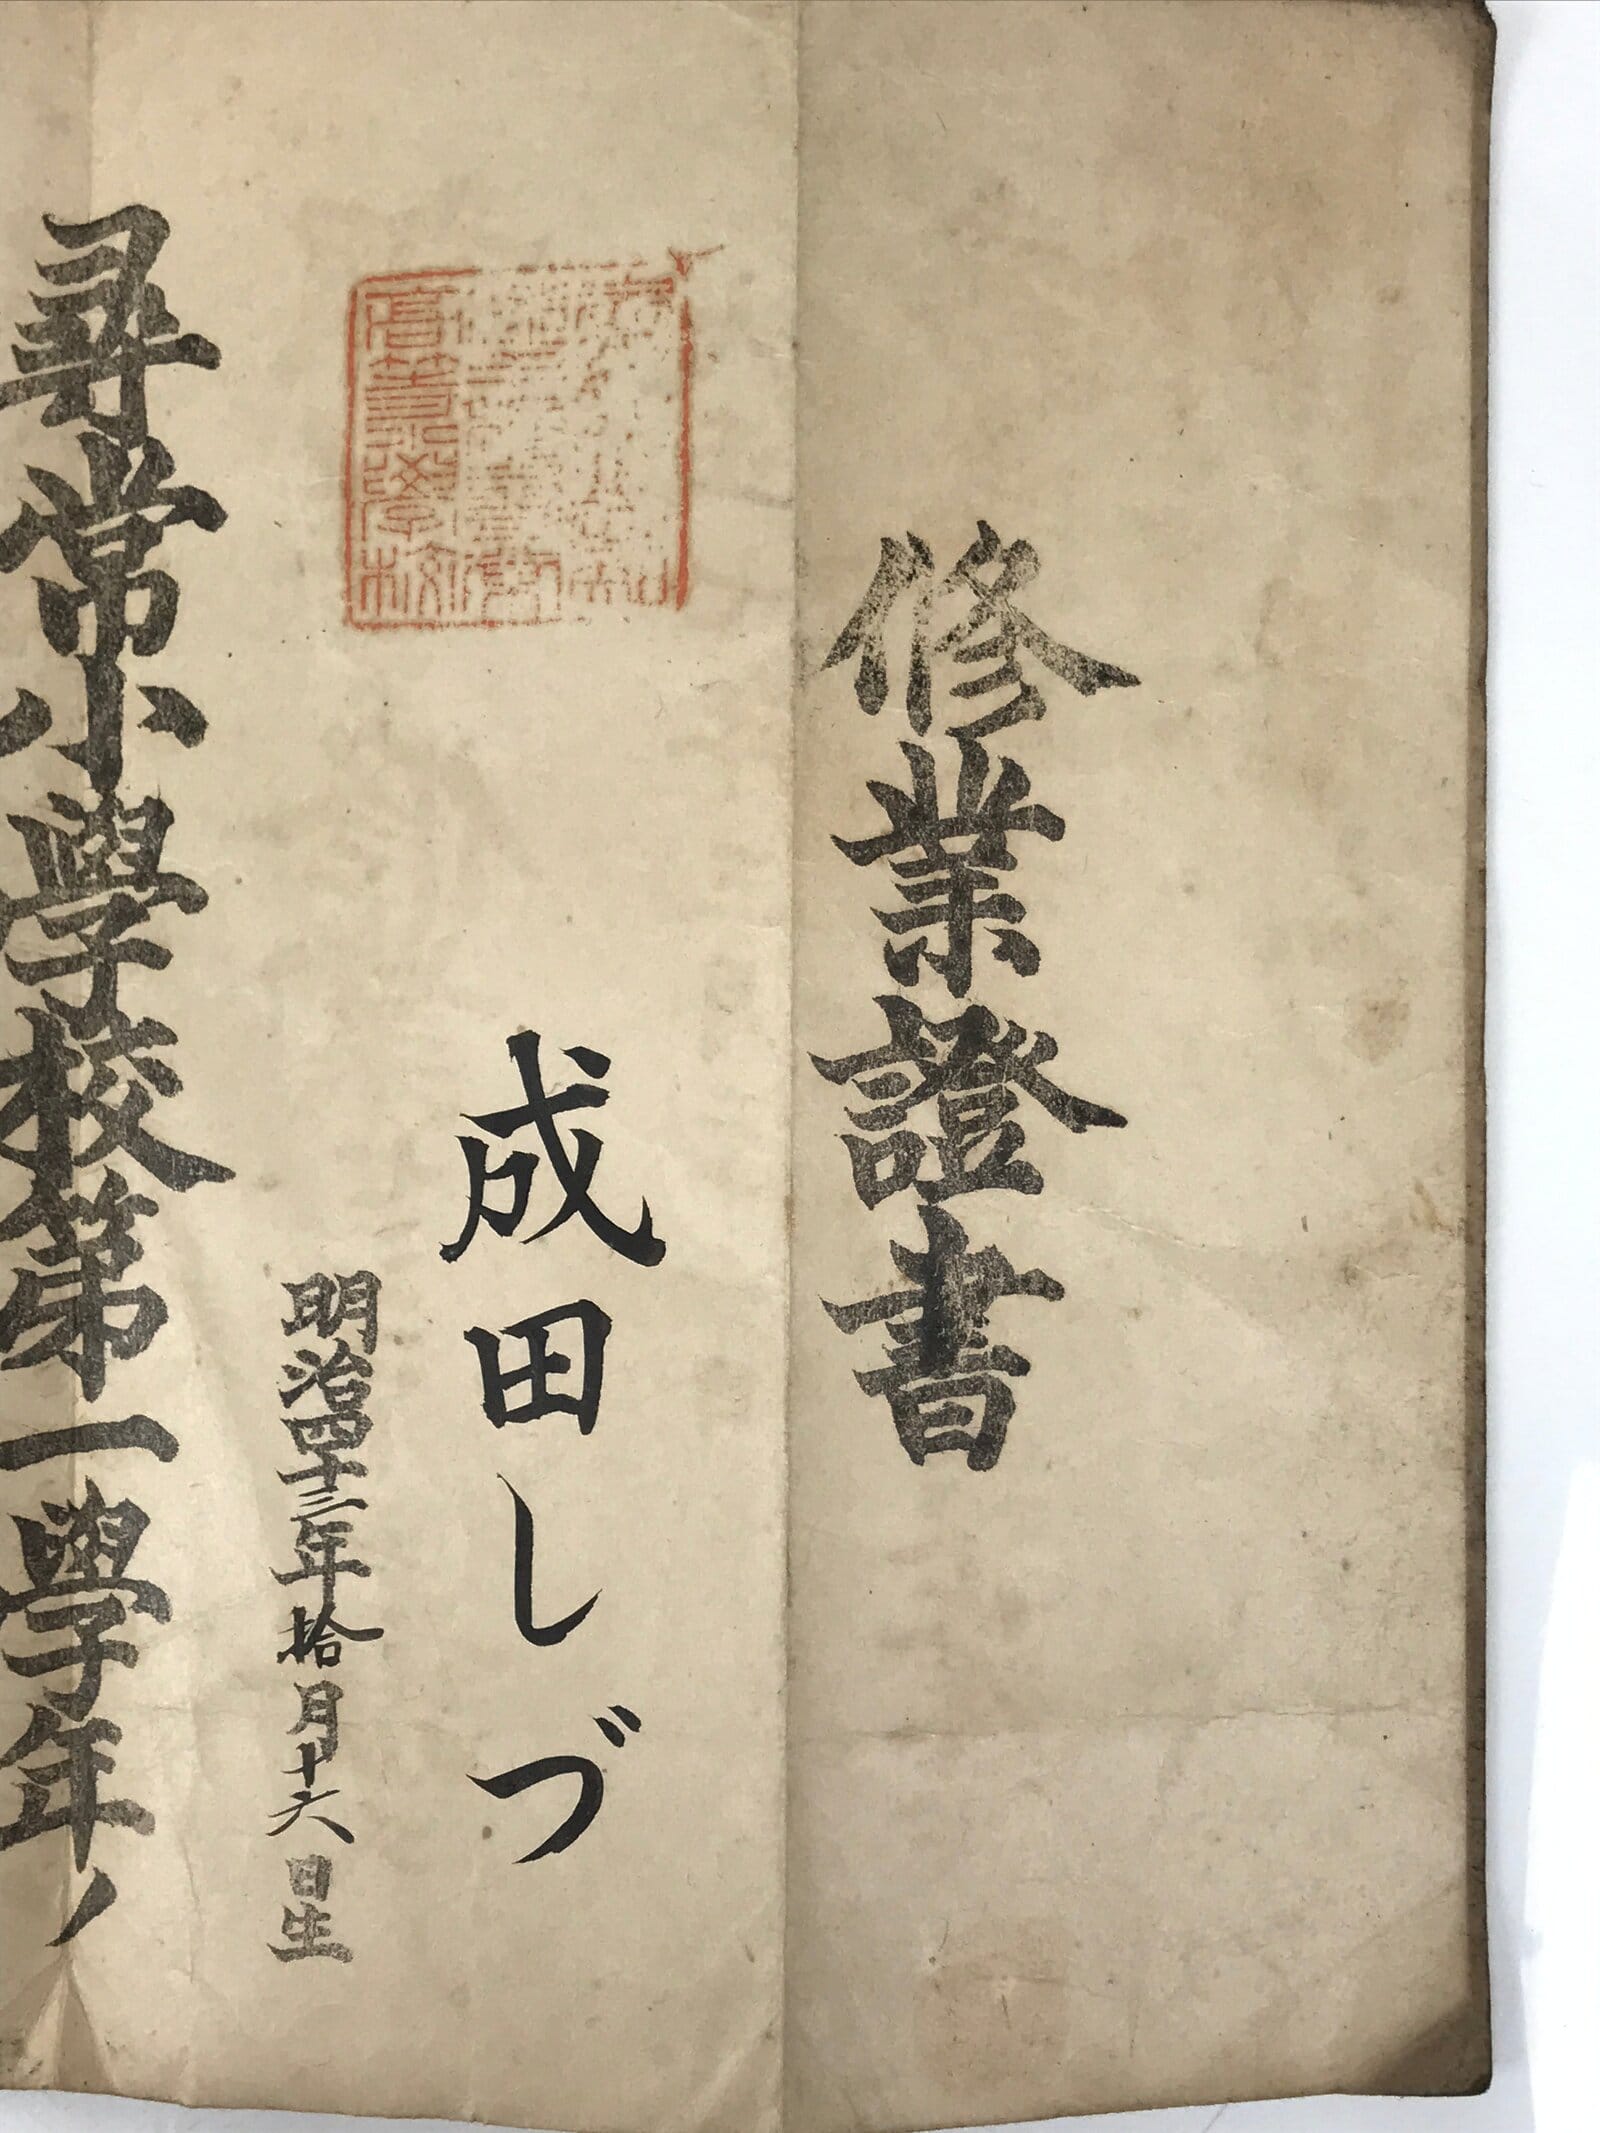 修業證書
成田しづ
明治四十三年拾月十六日生
尋常小學校第一學年ノ